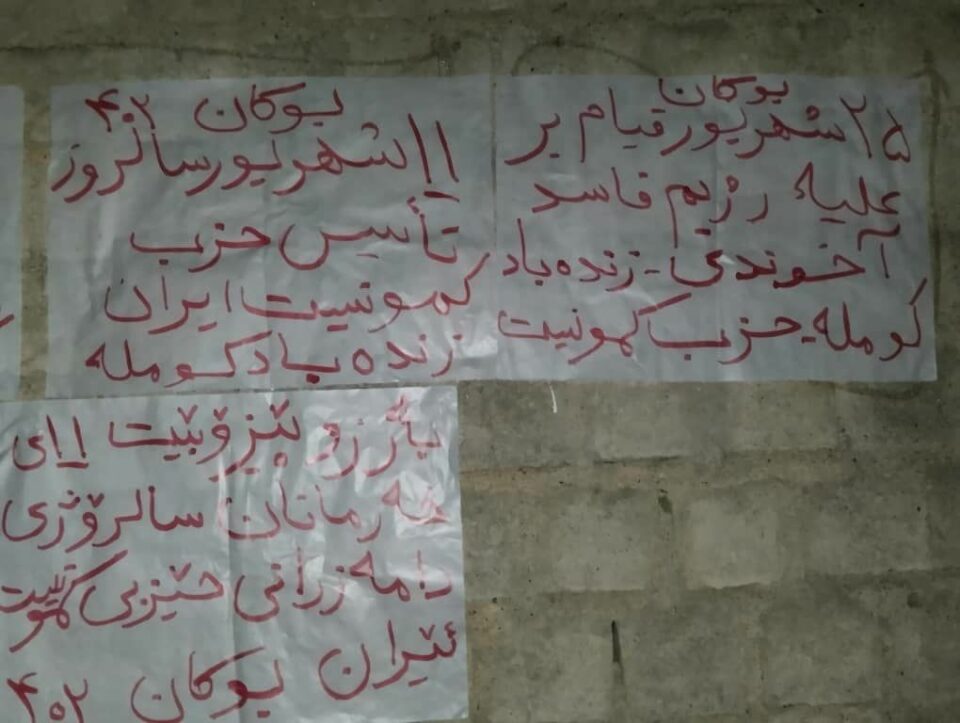 بوکان
۲۵ شهریور قیام بر
علیه رژیم فاسد
آخوندی - زنده باد
کومله - حزب کمونیست
بوکان ۴۰۲
۱۱ شهریور سالروز
تأسیس حزب
کمونسیت ایران
زنده باد کومله
بەرز و پێرۆبێت ١١ی
خەرمانان ساڵرۆژی
دامەزرانی حێزبی کمونیست
ئێران بوکان ۴۰۲